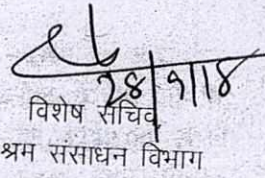 28/9/18
विशेष सचिव
श्रम संसाधन विभाग